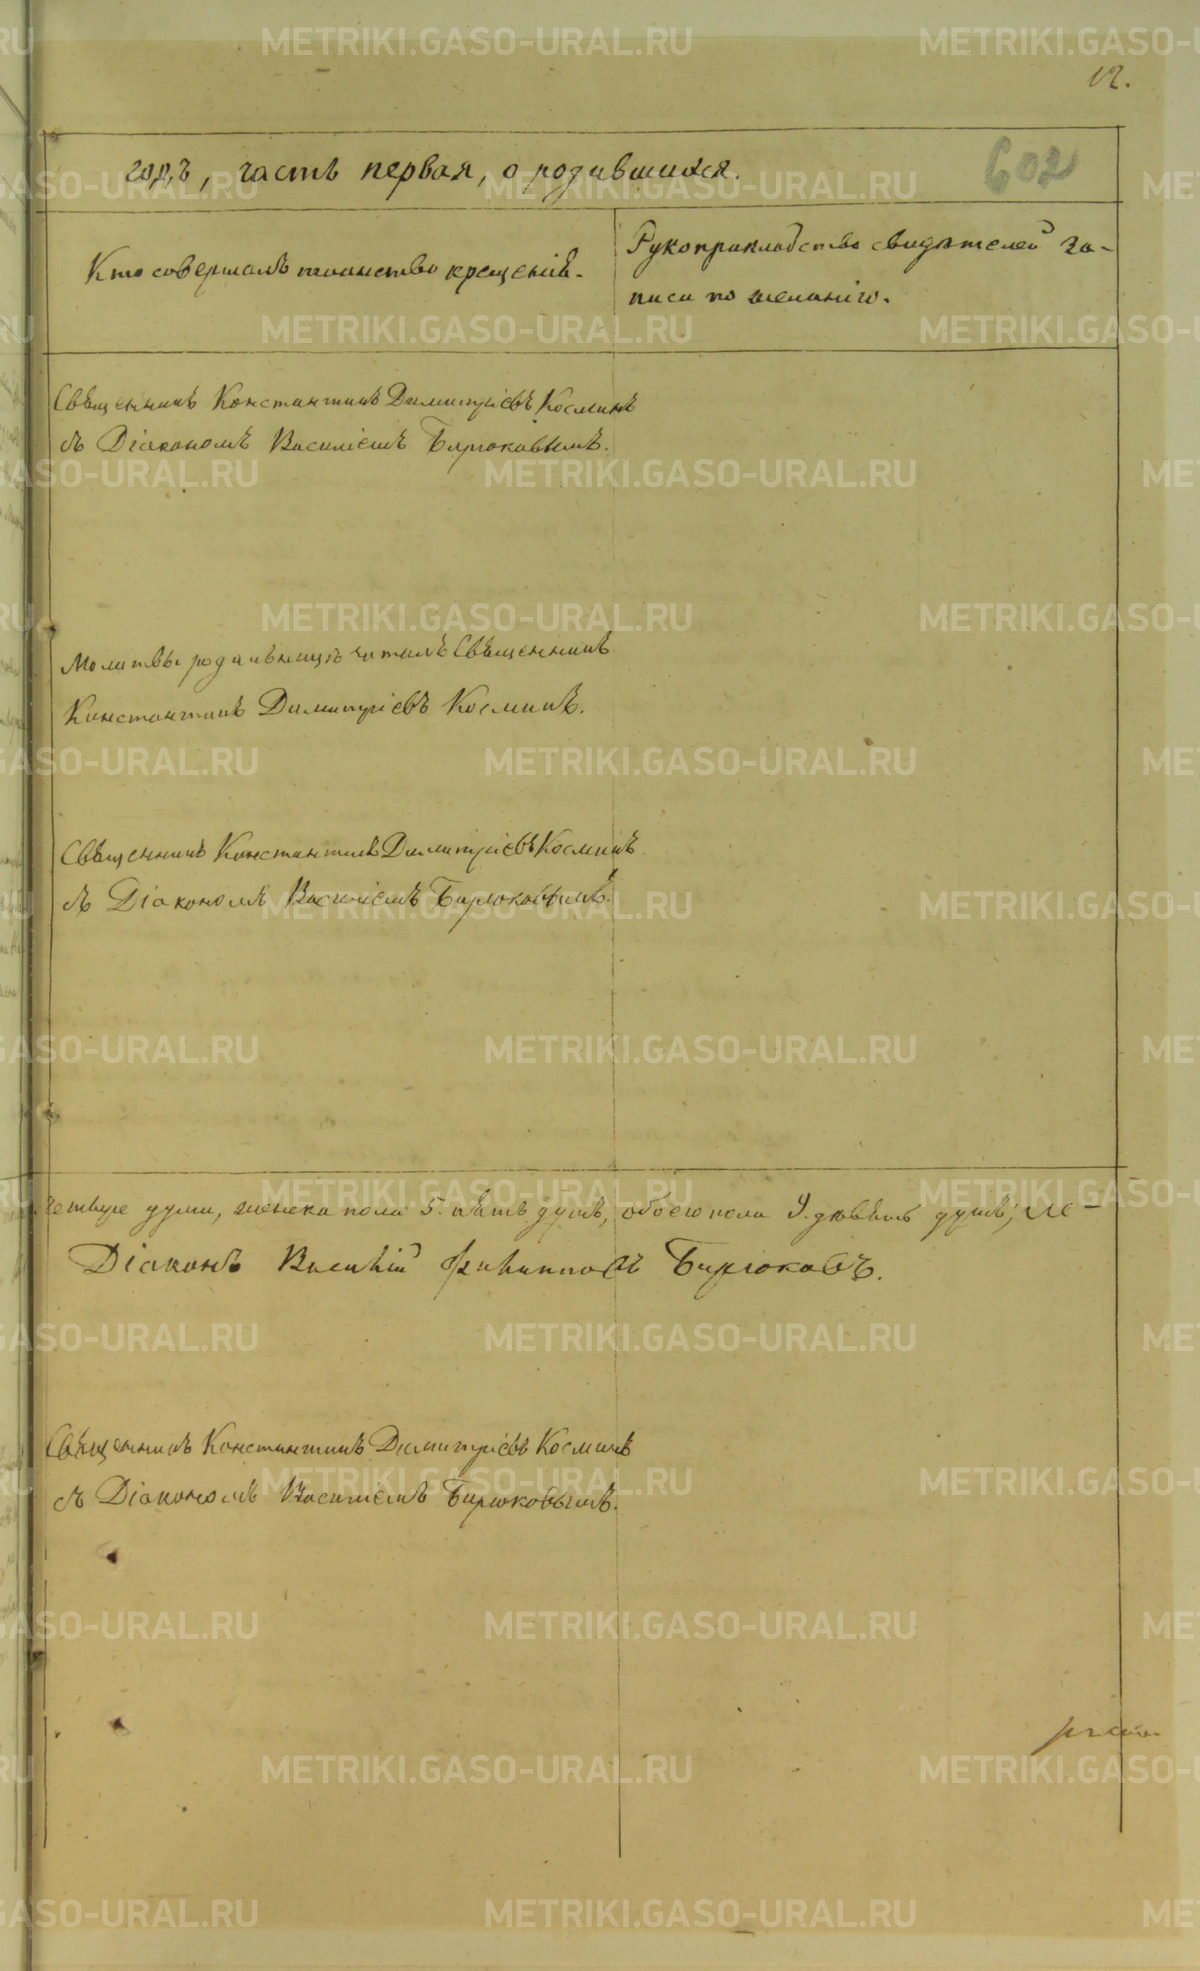 12.
602
годъ, часть первая, о родившихся.
Кто совершалъ таинство крещенія.
Рукоприкладство свидѣтелей за-
писи по желанію.
Священникъ Константинъ Димитріевъ Косминъ
съ Діакономъ Василіемъ Бирюковымъ.
Молитвы родильницѣ читалъ Священникъ
Константинъ Димитріевъ Косминъ.
Священникъ Константинъ Димитріевъ Косминъ
съ Діакономъ Василіемъ Бирюковымъ.
четыре души, женска пола 5. пять душъ, обоего пола 9. девять душъ;
Діаконъ Василій Филипповъ Бирюковъ.
Священникъ Константинъ Димитріевъ Косминъ
съ Діакономъ Василіемъ Бирюковымъ.
METRIKI.GASO-URAL.RU